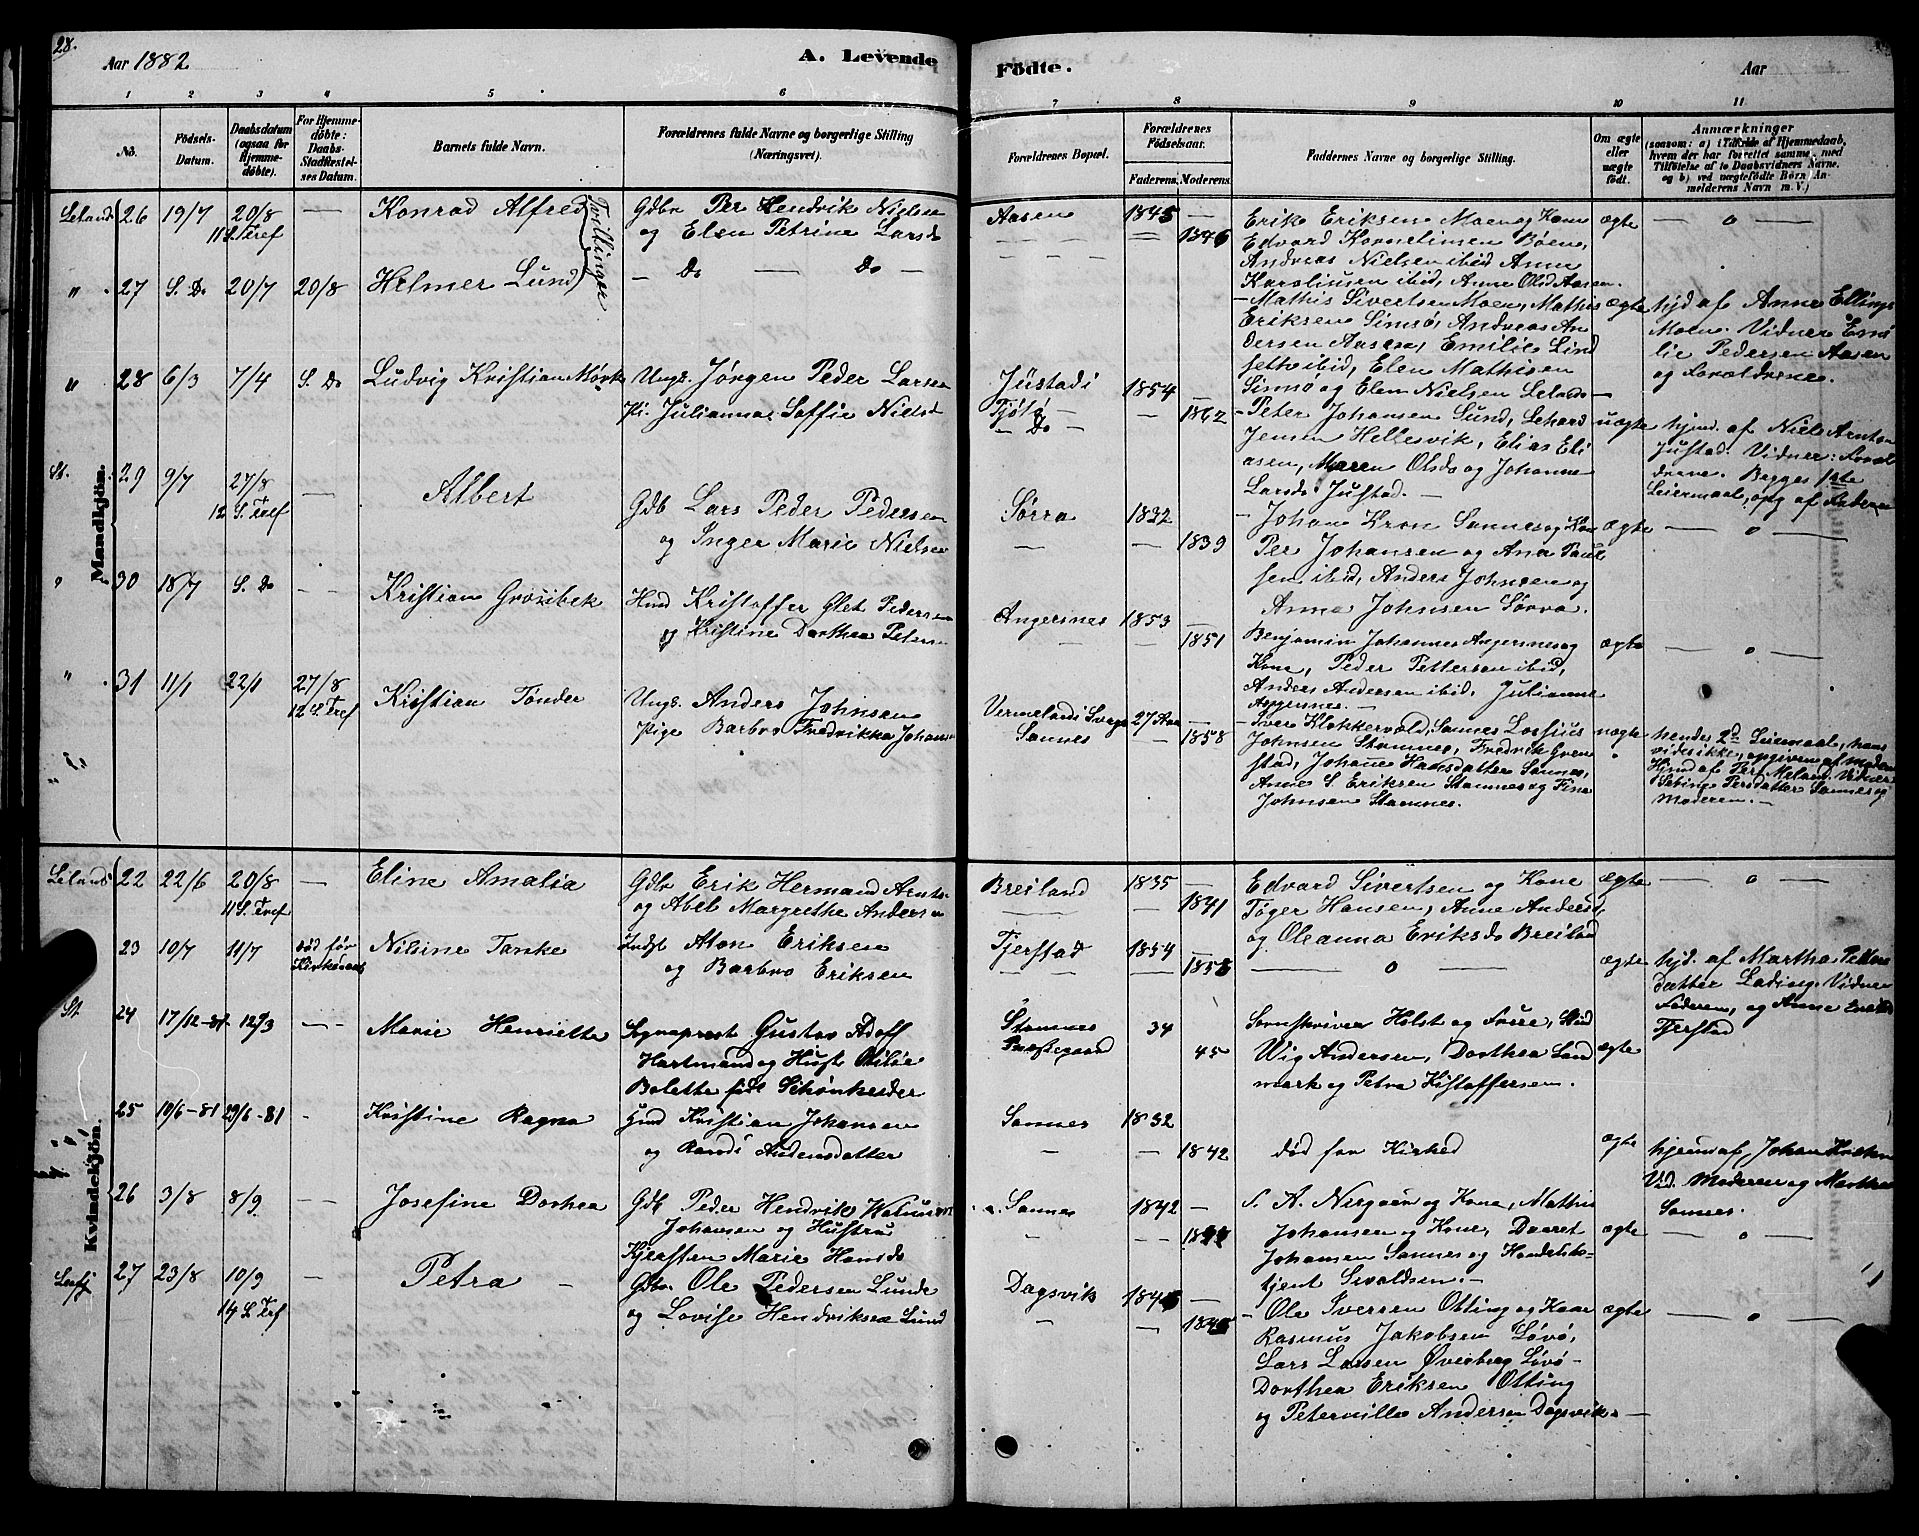 28.
Aar 1882
A. Levende
Fødte.
Aar
1 2 3 4 5 6 7 8 9 10 11
No.
Fødsels-
Datum.
Daabsdatum
(ogsaa for
Hjemme-
døbte).
For Hjemme-
døbte:
Daabs-
Stadfæstel-
ses Datum.
Barnets fulde Navn.
Forældrenes fulde Navne og borgerlige Stilling
(Næringsvei).
Forældrenes Bopæl.
Forældrenes
Fødselsaar.
Faderens. Moderens.
Faddernes Navne og borgerlige Stilling.
Om ægte
eller
uægte
født.
Anmærkninger
(saasom: a) i Tilfælde af Hjemmedaab,
hvem der har forrettet samme, med
Tilføielse af to Daabsvidners Navne,
og b) ved uægtefødte Børn An-
melderens Navn m. V.)
Mandkjøn.
Leland 26 19/7 20/8 — Konrad Alfred Gdbr Per Hendrik Nielsen Aasen 1845 — Erik Eriksen Moen og Kone ægte — o —
11 S. Tref Tvillinger og Elen Petrine Larsd 1846 Edvard Kornelinsen Bøen,
Andreas Nielsen ibid Anne
" 27 S. D. 20/7 20/8 Helmer Lund — Do — Do — Karolinsen ibid, Anne Olsd Aasen.
— Mathis Sivertsen Moen, Mathis ægte hjd af Anne Ellings
Eriksen Simsø, Andreas An Moen. Vidner Emi
dersen Aasen, Emilie Lind lie Pedersen Aasen
seth ibid, Elen Mathisen og Forældrene.
" 28 6/3 7/4 S. D. Ludvig Kristian Mørk Ungk. Jørgen Peder Larsen Justad i 1854 — Simsø og Elen Nielsen Leland —
Pi. Julianna Soffie Nielsd Tjøtø — Do — 1862 — Peter Johansen Sund, Lehard uægte hjmd. af Niels Arnton
Jensen Hellesvik, Elias Eli Justad. Vidner: Foræl
asen, Maren Olsd og Johanne drene. Begges 1ste
Larsd Justad. — Leiermaal, opg af Faderen
St. 29 9/7 27/8 — Albert Gdb Lars Peder Pedersen Sørra 1832 — Johan Kron Sannes og Kone ægte — o —
12 S. Tref og Inger Marie Nielsen — 1839 Per Johansen og Ana Paul
sen ibid, Anders Johnsen og
" 30 18/7 S. D. — Kristian Grøsibek Hmd Kristoffer Glet Pedersen Angersnes 1853 Anna Johnsen Sørra.
og Kristine Dorthea Peters — 1851 Benjamin Johannes Angersnes og ægte — o —
Kone, Peder Pettersen ibid,
" 31 11/1 22/1 27/8 Kristian Tønder Ungk. Anders Johnsen Vermeland i Sverge 27 Aar — Anders Andersen ibid, Julianne
12 S. Tref Pige Barbro Fredrikka Johans Sannes 1858 Angersnes. —
— Iver Klokkervold, Sannes uægte hendes 2d Leiermaal, hans
Johnsen Stamnes, Fredrik Grøn vides ikke, opgiven af moderen
stad, Johane Hansdatter Sannes, Hjmd af Meland. Vidner
Anne S. Eriksen Stamnes og Fina Persdatter Sannes og
Johnsen Stamnes. Moderen. —
Kvindekjøn.
Leland 22 22/6 20/8 — Eline Amalia Gdbr Erik Hermand Arnts Breiland 1835 — Edvard Sivertsen og Kone ægte — o —
11 S. Tref og Abel Margrethe Andersen 1841 Tøger Hansen, Anne Andersd,
og Oleanna Eriksd Breiland
23 10/7 11/7 død før Nilsine Tanke Indst Aton Eriksen Tjerstad 1854 — — o — ægte hjd. af Martha Petters
Kirkedaab og Barbro Eriksen 1853 Datter Lading. Vidner
Faderen, og Anne
St 24 17/12-81 12/3 — Marie Henriette Sogneprest Gustav Adolf Stamnes 34 Sorenskriver Holst og Frue, Tjerstad
Hartmand og Hustr Otilie Præstegaard 45 Wig Andersen, Dorthea Land ægte
Bolette født Schönheider mark og Petra Kistoffersen.
25 10/6-81 29/6-81 — Kristine Ragna Hmd Kristian Johansen Sannes 1832
og Randi Andersdatter — 1842 død før Kirked ægte hjem af, Johan
Vid. Moderen og Martha
26 3/8 8/9 — Josefine Dorhea Gdb Peder Hendrik Sannes 1842 — S. A. Nergaar og Kone, Mathis Sannes.
Johansen og Hustru Johansen og Kone, Daaret ægte — o —
Kjersten Marie Hansd Johansen Sannes og Handelsb-
tjent Sivaldsen. —
27 23/8 10/9 — Petra — Gdbr Ole Pedersen Lunde Dagsvik 1845 —
14 S. Tref og Lovise Hendriksen Lund " — 1845 — Ole Iversen Otting og Kaar ægte — o —
Rasmus Jakobsen Løvø,
Lars Larsen Øverberg Løvø —
Dorthea Eriksen Otting
og Peternille Andersen Dagsvik. —